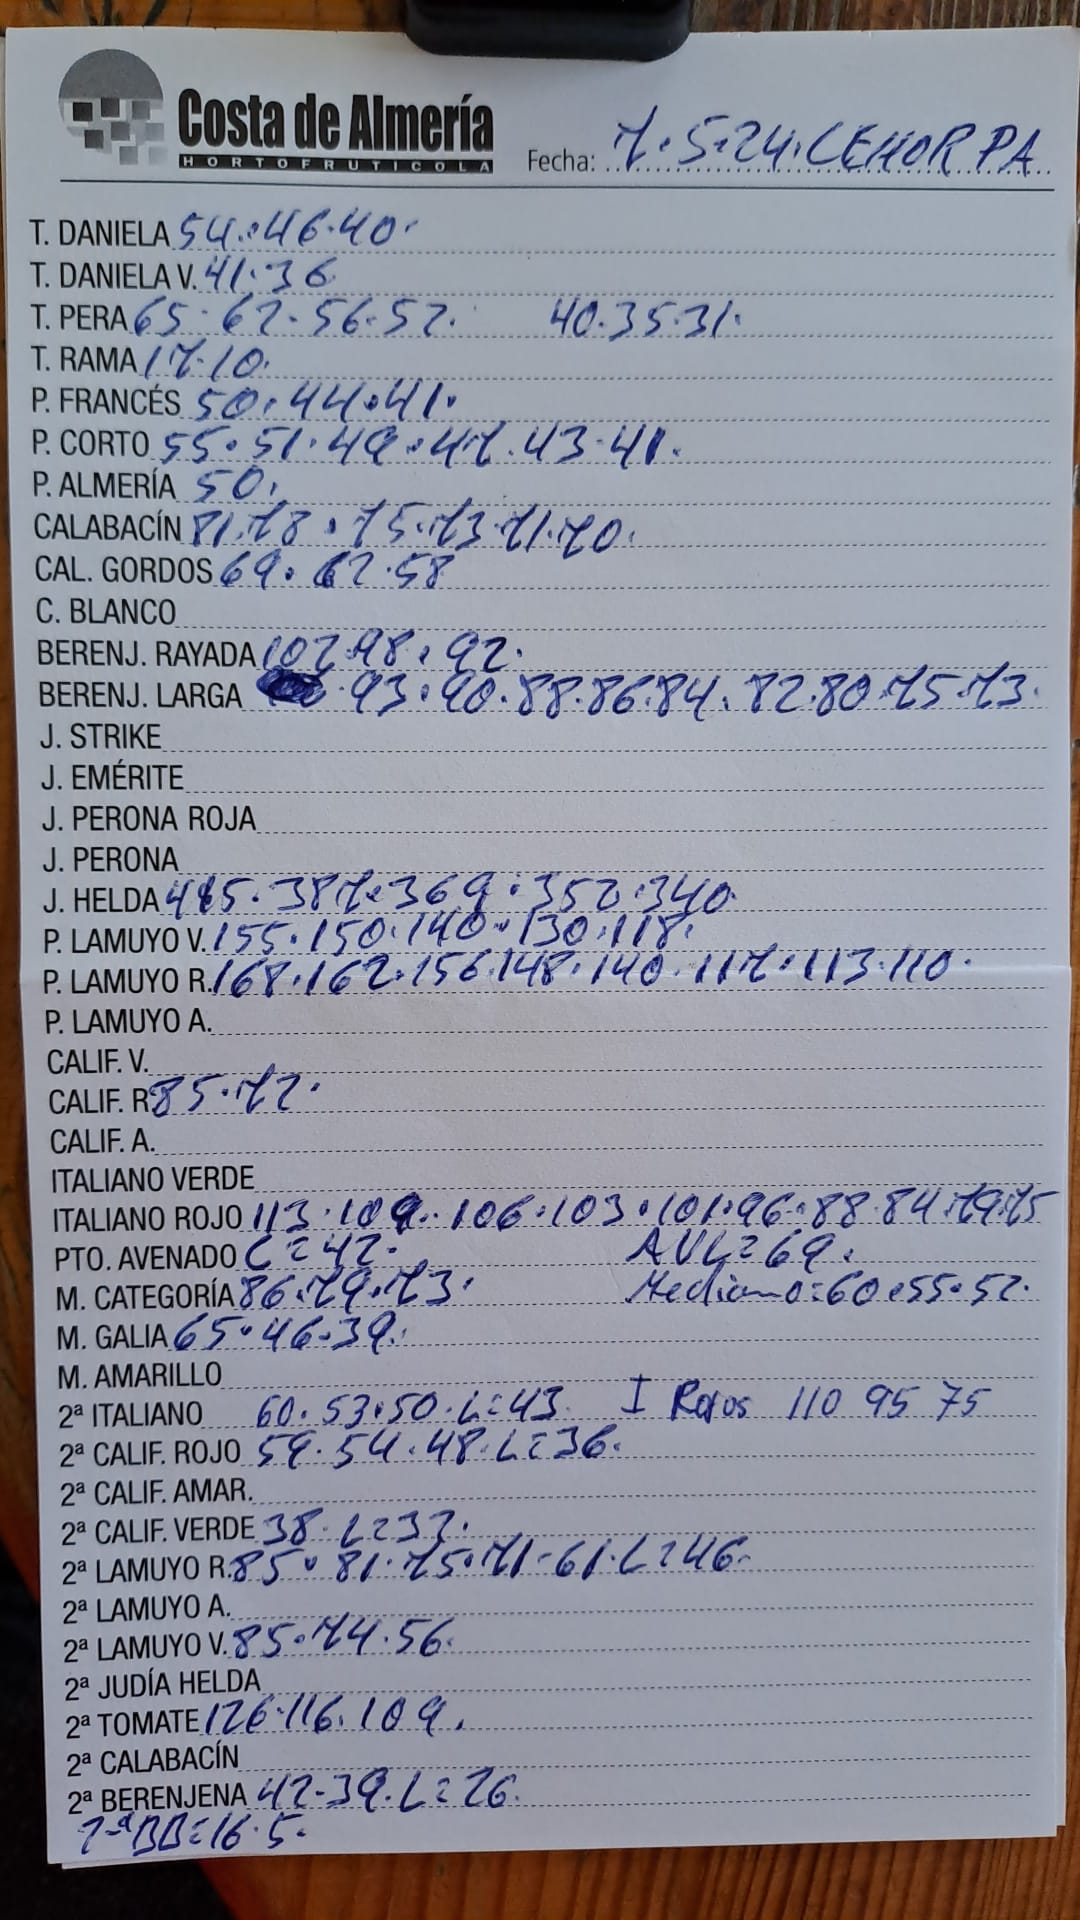 Costa de Almería
HORTOFRUTICOLA
Fecha: 7.5.24. CEHOR PA
T. DANIELA 54.46.40.
T. DANIELA V. 41.36
T. PERA 65.62.56.52. 40.35.31.
T. RAMA 17.10.
P. FRANCÉS 50.44.41.
P. CORTO 55.51.49.47.43.41.
P. ALMERÍA 50.
CALABACÍN 81.78.75.73.71.70.
CAL. GORDOS 69.62.58
C. BLANCO
BERENJ. RAYADA 102.98.92.
BERENJ. LARGA 93.90.88.86.84.82.80.75.73.
J. STRIKE
J. EMÉRITE
J. PERONA ROJA
J. PERONA
J. HELDA 387.369.352.340.
P. LAMUYO V. 155.150.140.130.118.
P. LAMUYO R. 168.162.156.148.140.117.113.110.
P. LAMUYO A.
CALIF. V.
CALIF. R. 85.72.
CALIF. A.
ITALIANO VERDE
ITALIANO ROJO 113.109.106.103.101.96.88.84.79.75
PTO. AVENADO C=42. AVL=69.
M. CATEGORÍA 86.79.73. Mediano=60.55.52.
M. GALIA 65.46.39.
M. AMARILLO
2ª ITALIANO 60.53.50.L=43. I Rojos 110 95 75
2ª CALIF. ROJO 59.54.48.L=36.
2ª CALIF. AMAR.
2ª CALIF. VERDE 38.L=33.
2ª LAMUYO R. 85.81.75.71-61.L=46.
2ª LAMUYO A.
2ª LAMUYO V. 85.74.56.
2ª JUDÍA HELDA
2ª TOMATE 126.116.109.
2ª CALABACÍN
2ª BERENJENA 42-39.L=26.
2ªBB=16.5.